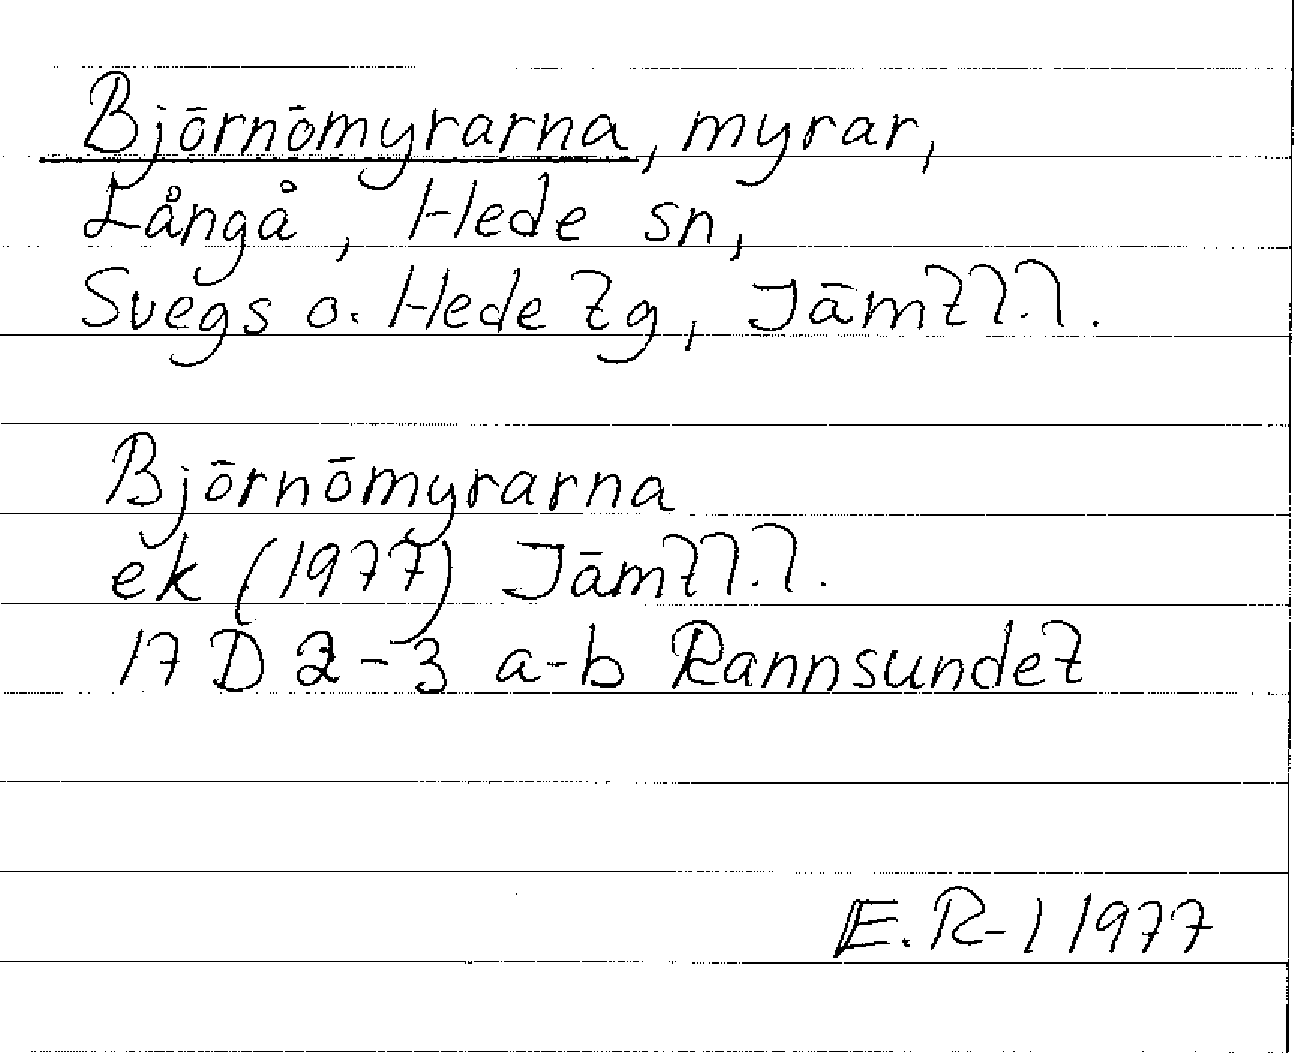 Björnömyrarna, myrar,
Långå, Hede sn,
Svegs o. Hede tg, Jämtl.l.
Björnömyrarna
ek (1977) Jämtl.l.
17 D 2-3 a-b Rannsundet
E. R-l 1977